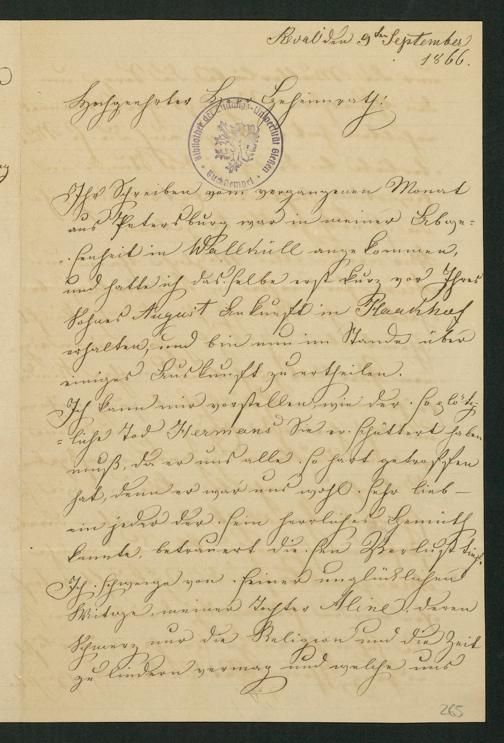 Reval den 9ten September
1866.
Hochgeehrter Herr Geheimrath!
Ihr Schreiben vom vergangenen Monat
aus Petersburg war in meiner Abwe-
senheit in Wallküll angekommen,
und hatte ich dasselbe erst kurz vor Ihres
Sohnes August Ankunft in
erhalten, und bin nun im Stande über
einiges Auskunft zu ertheilen.
Ich kann mir vorstellen, wie der so plötz-
liche Tod Hermans Sie erschüttert haben
muß, da er uns alle so hart getroffen
hat, denn er war uns wohl sehr lieb –
ein jeder der sein herrliches Gemüth
kannte, betrauert diesen Verlust tief.
Ich schweige von seiner unglücklichen
Wittwe, meiner Tochter Aline, deren
Schmerz nur die Religion und die Zeit
zu lindern vermag und welche uns
265